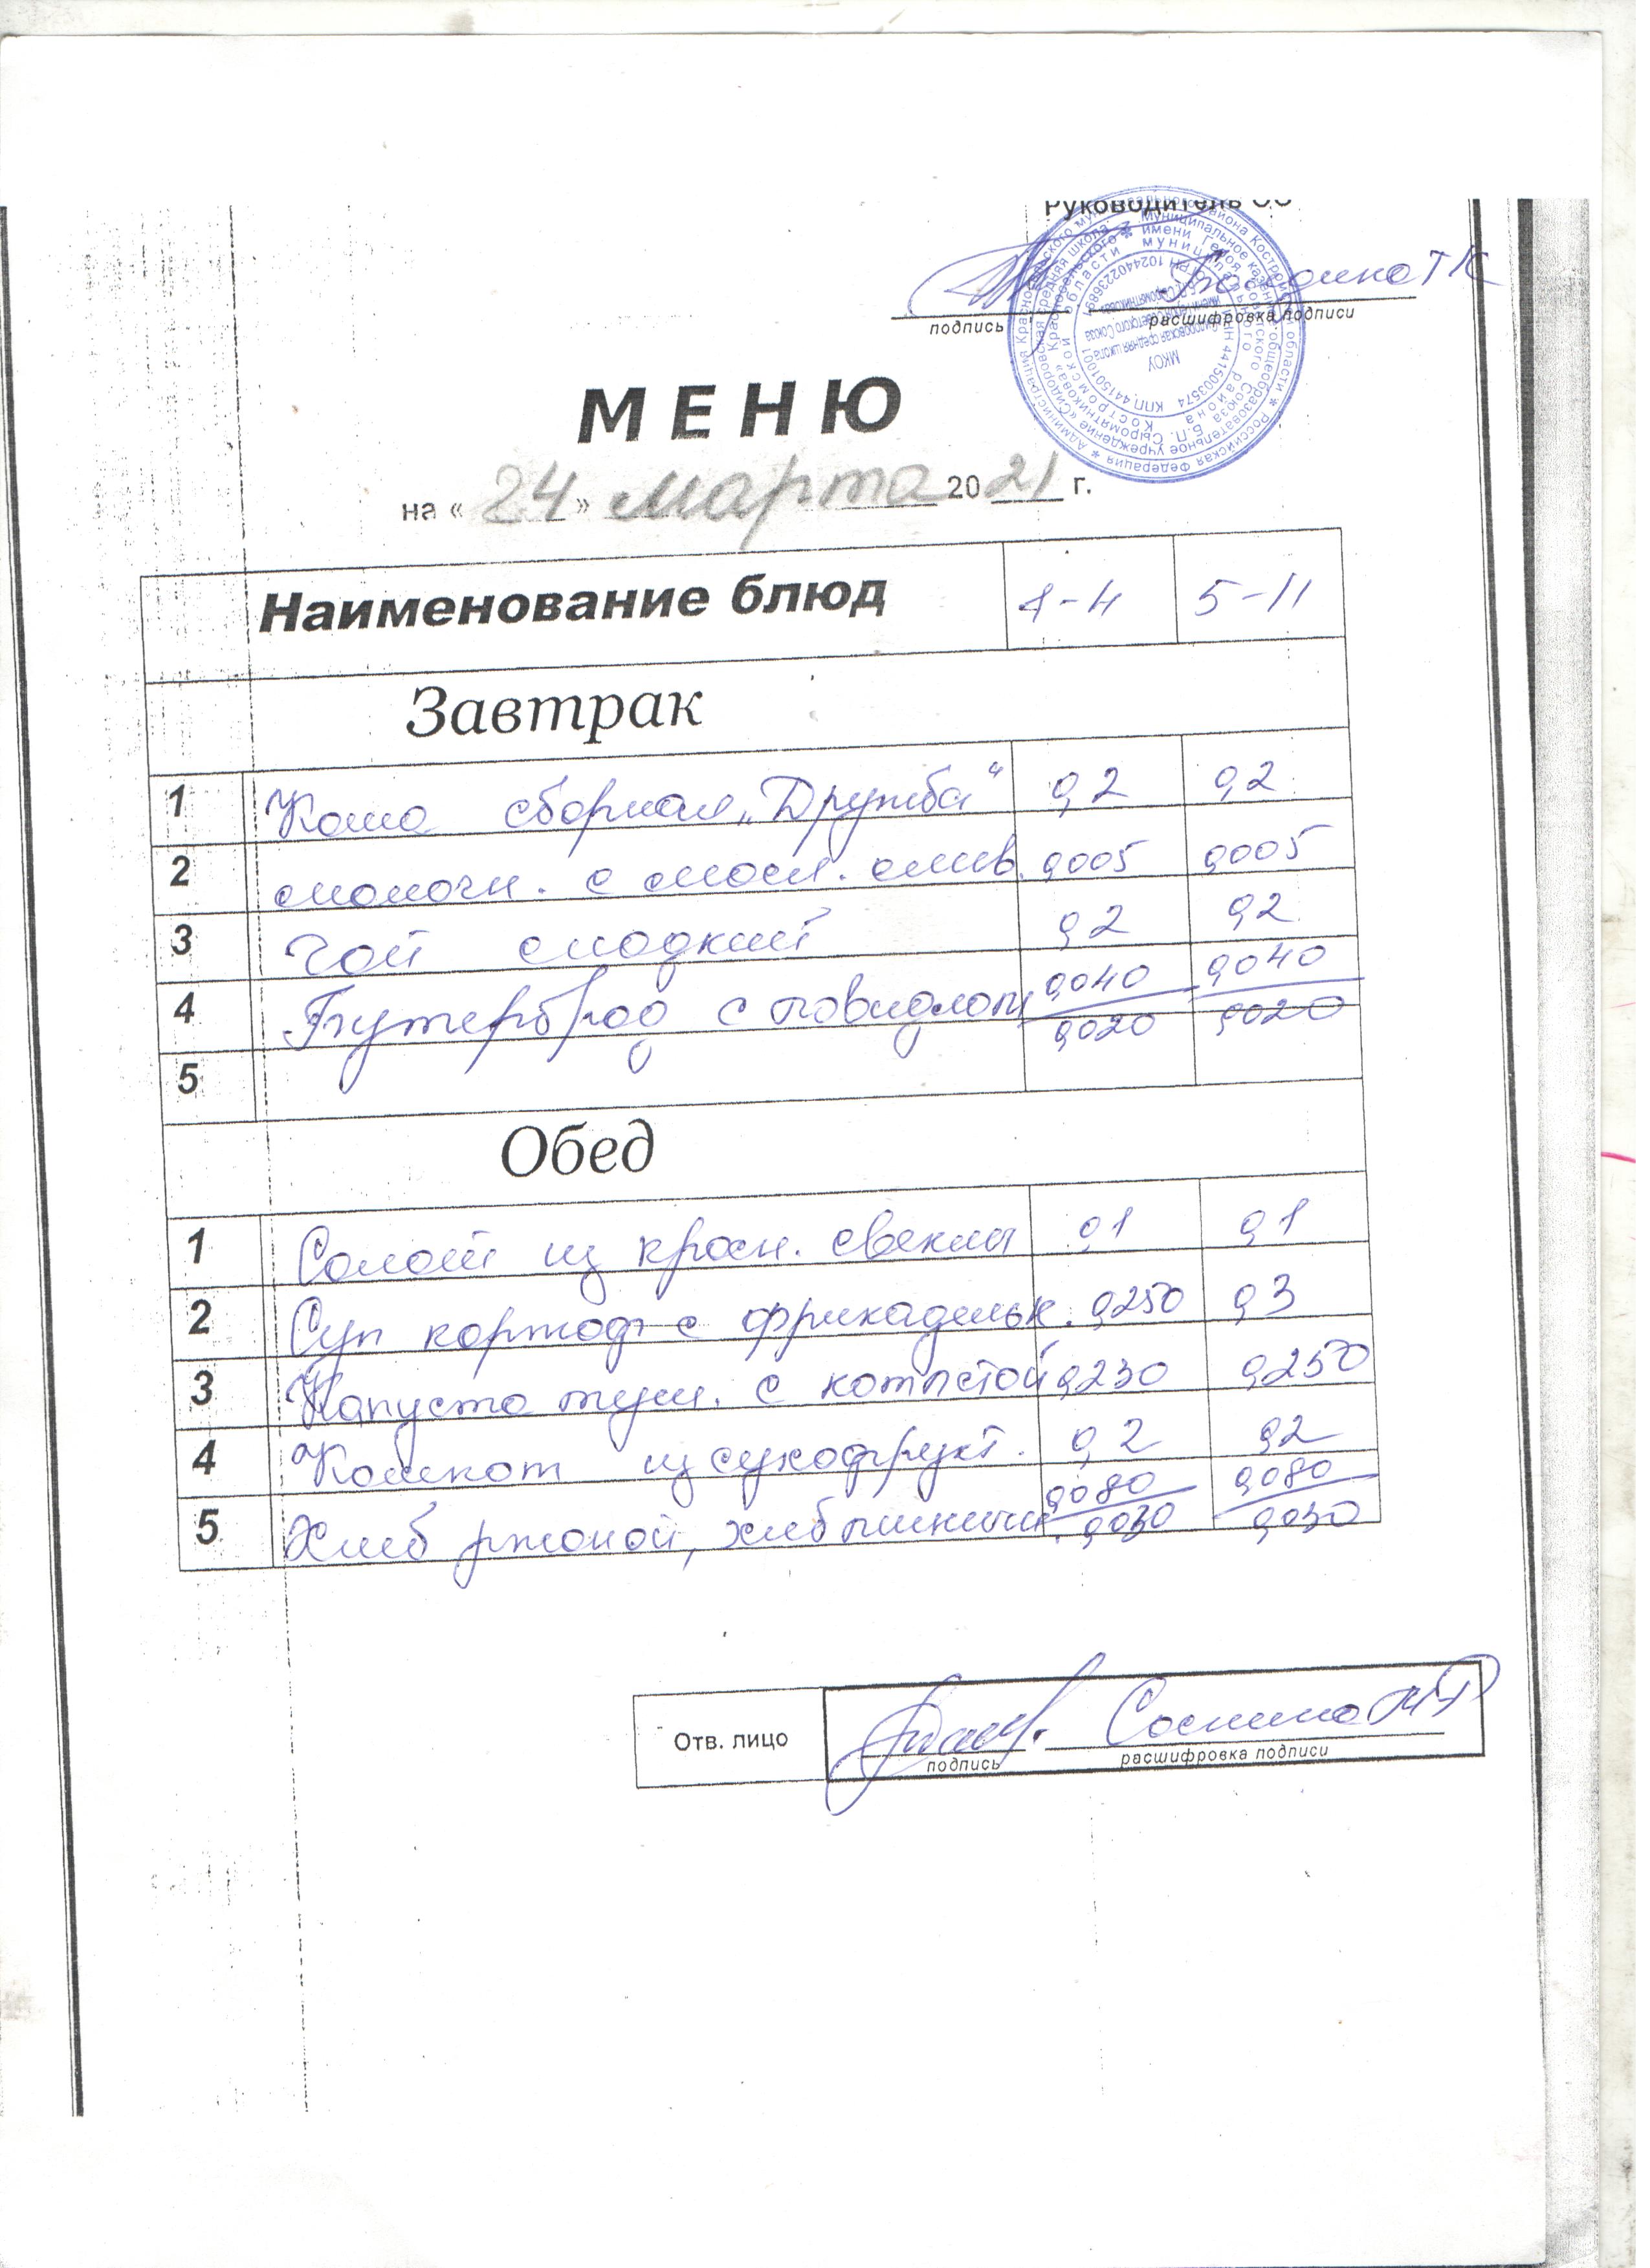 Руководитель ОО
ТК
подпись расшифровка подписи
МЕНЮ
на « 24 » марта 20 21 г.
Наименование блюд 1-4 5-11
Завтрак
1 Каша сборная „Дружба“ 0,2 0,2
2 молочн. с масл. слив. 0,005 0,005
3 Чай сладкий 0,2 0,2
4 Бутерброд с повидлом 0,040 0,040
0,020 0,020
5
Обед
1 Салат из красн. свеклы 0,1 0,1
2 Суп картоф с фрикадельк. 0,250 0,3
3 Капуста туш. с котлетой 0,230 0,250
4 Компот из сухофрукт. 0,2 0,2
5 Хлеб ржаной, хлеб пшеничн. 0,080 0,080
0,030 0,030
Отв. лицо Соснина
подпись расшифровка подписи
МКОУ
ИНН 4415003574 КПП 441501001